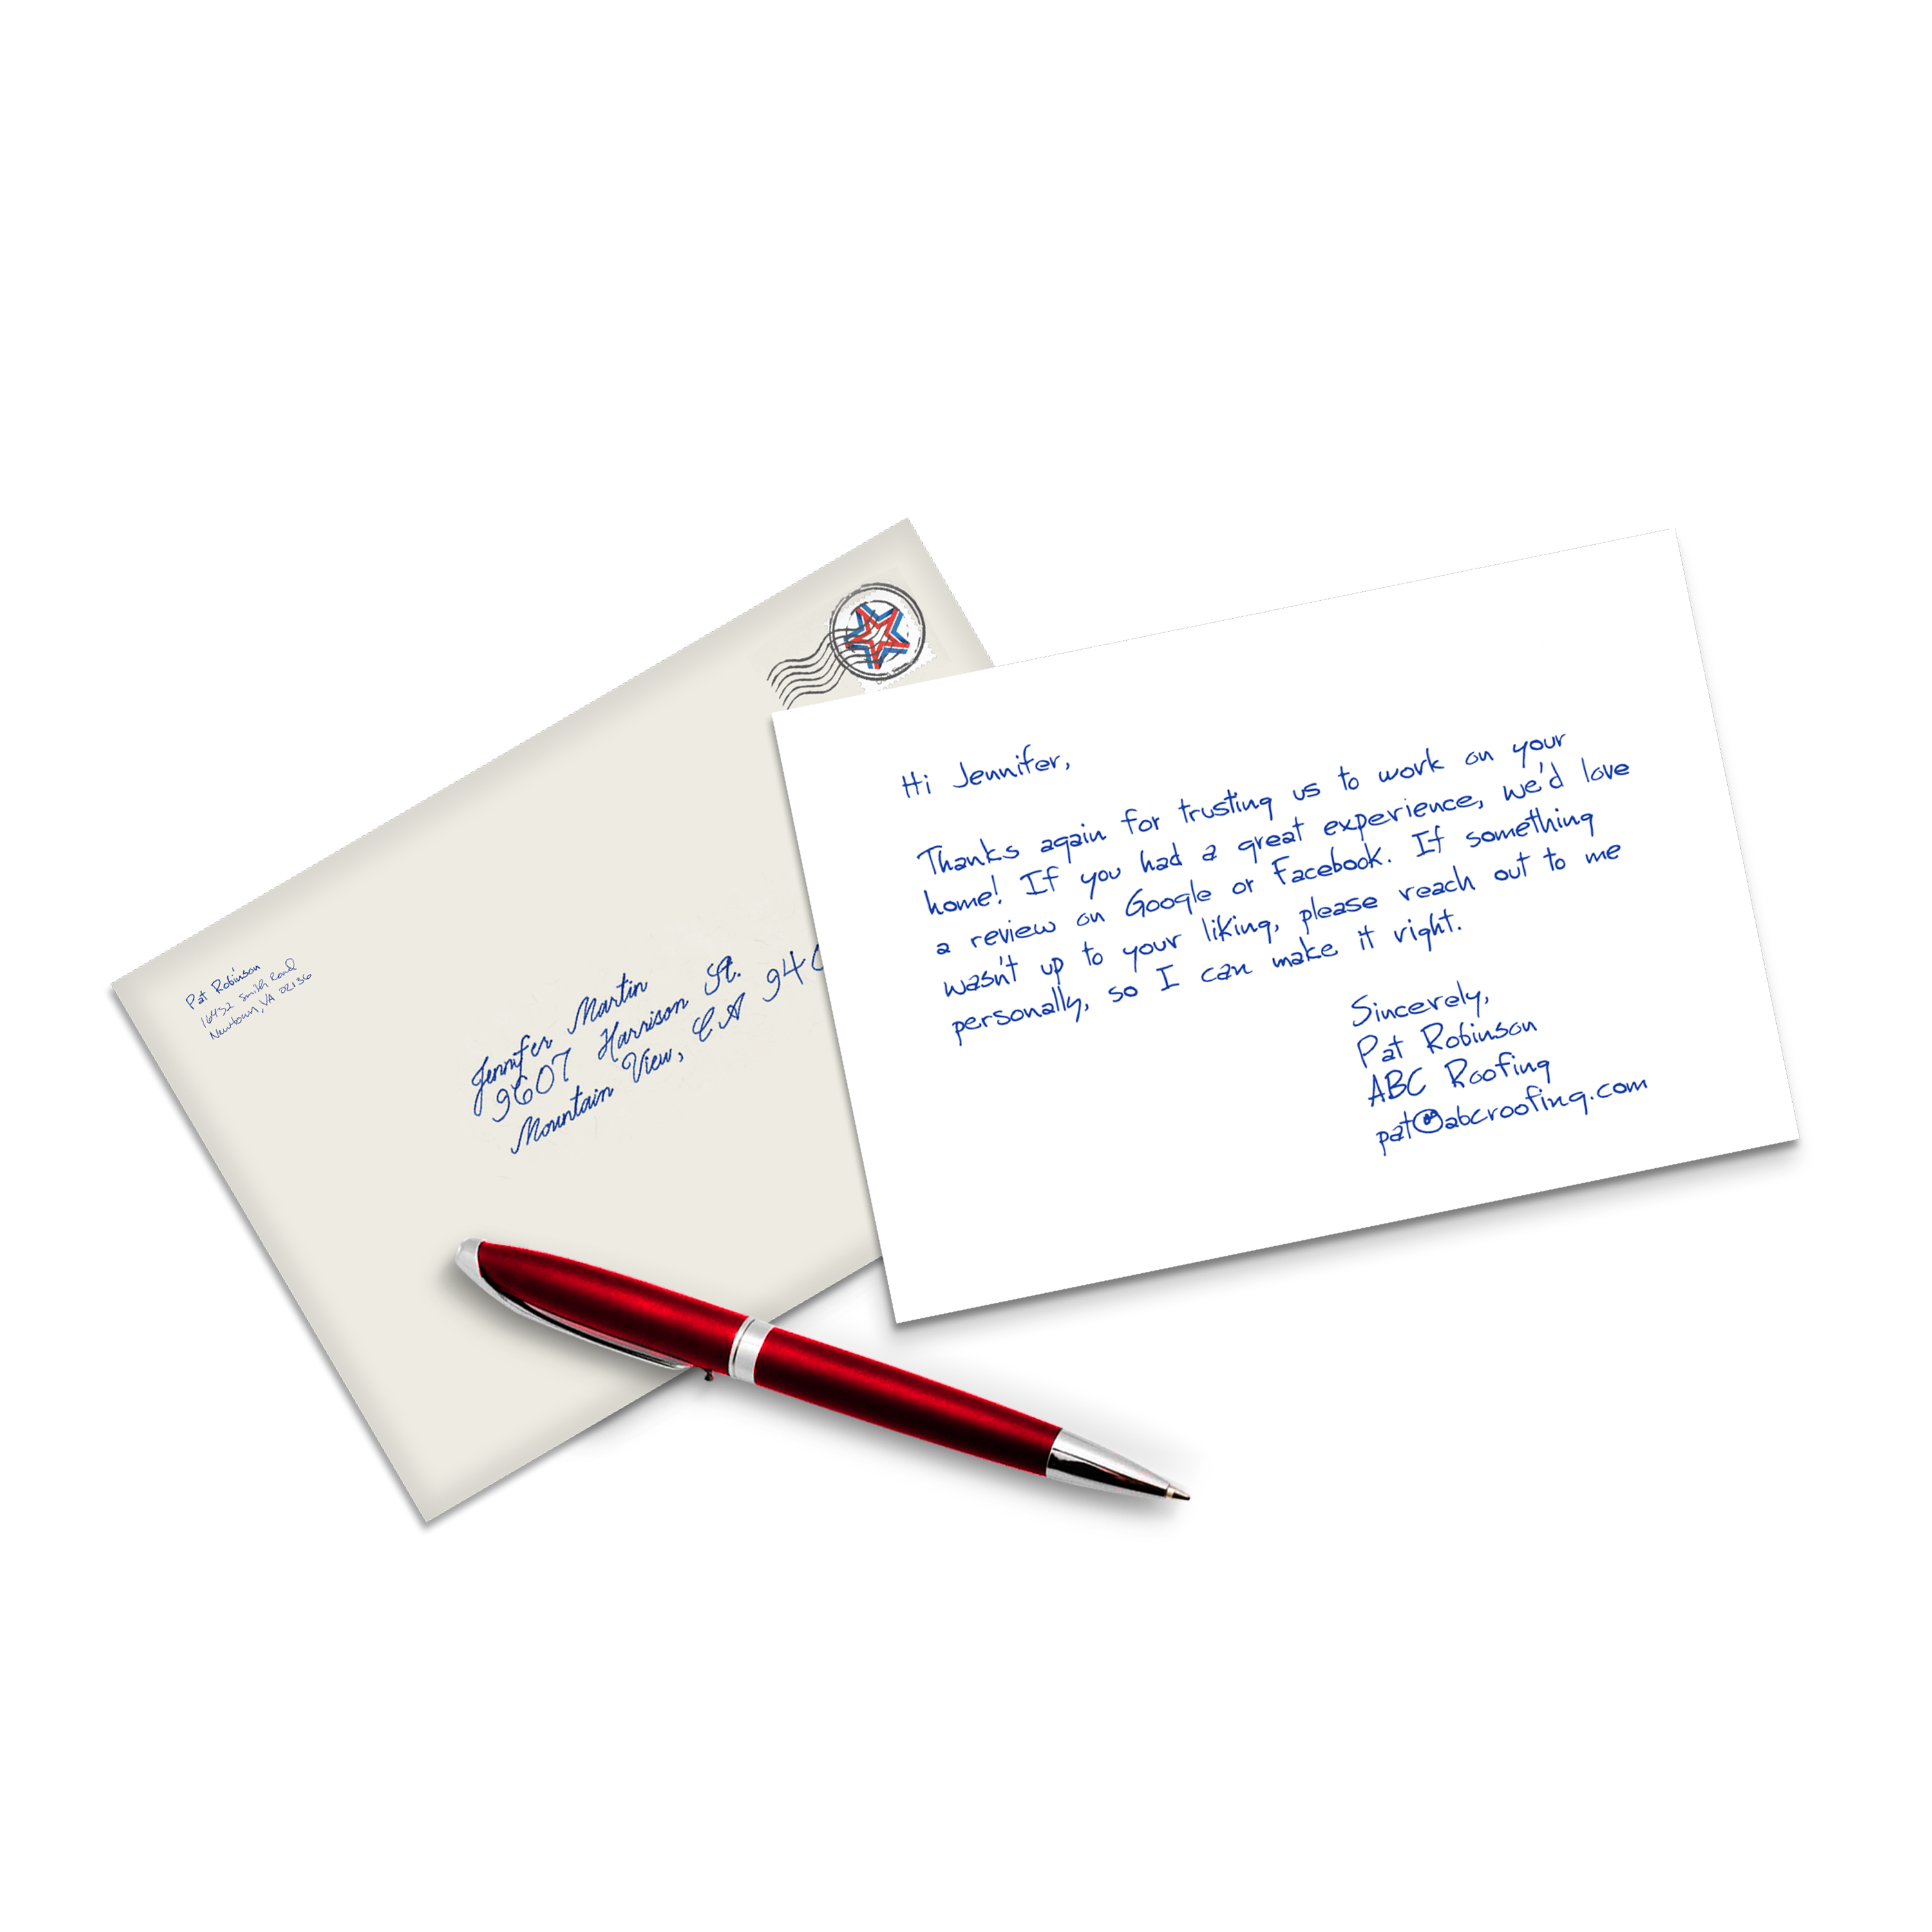 Pat Robinson
16432 Smith Road
Newtown, VA 02136
Jennifer Martin
9607 Harrison St.
Mountain View, CA 940
Hi Jennifer,
Thanks again for trusting us to work on your
home! If you had a great experience, we'd love
a review on Google or Facebook. If something
wasn't up to your liking, please reach out to me
personally, so I can make it right.
Sincerely,
Pat Robinson
ABC Roofing
pat@abcroofing.com